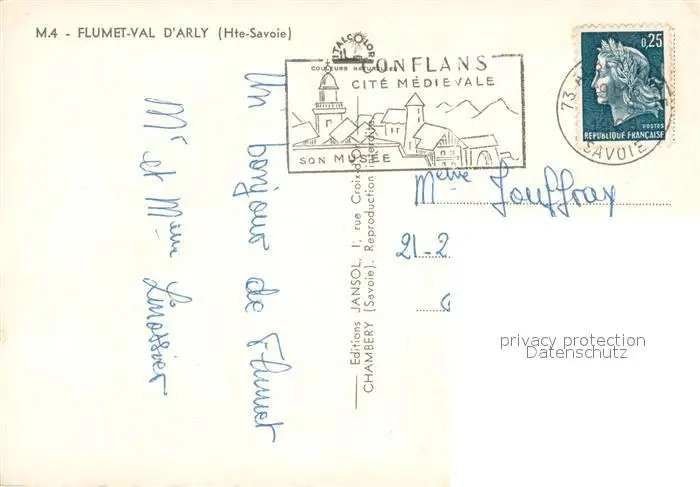 M.4 - FLUMET-VAL D'ARLY (Hte-Savoie)
ITALCOLOR
COULEURS NATURELLES
CONFLANS
CITÉ MÉDIEVALE
SON MUSÉE
0,25
POSTES
REPUBLIQUE FRANÇAISE
73
SAVOIE
Un bonjour de Flumet
Mr et Mme Limossier
Editions JANSOL, 1, rue Croix-d'Or
CHAMBERY (Savoie). Reproduction interdite
Mme Jouffray
21-2
privacy protection
Datenschutz